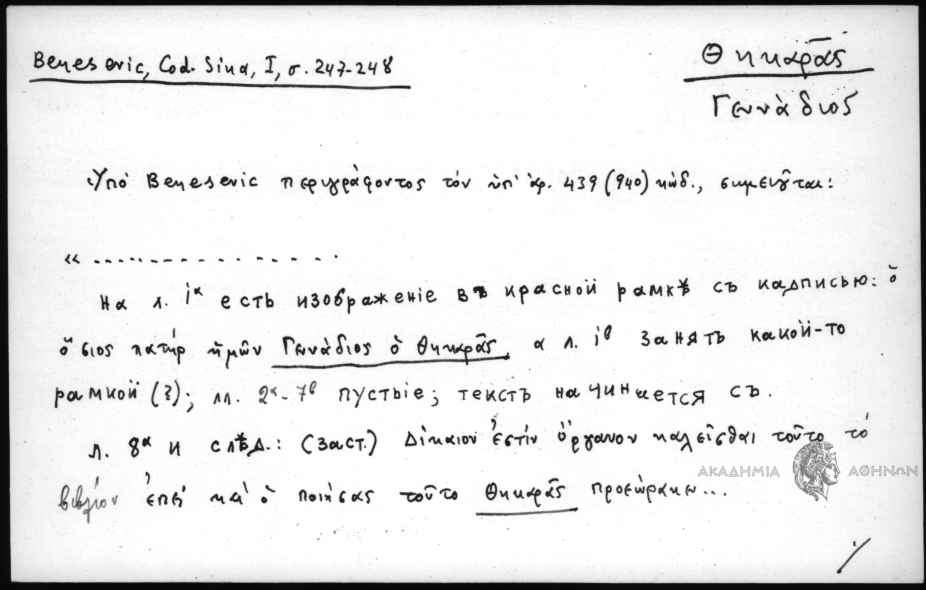 Benesevic, Cod. Sina, I, σ. 247-248
Θηκαρᾶς
Γεννάδιος
Ὑπό Benesevic περιγράφοντος τόν ὑπ' ἀρ. 439 (940) κώδ., σημειοῦται:
« . . . . . . . . . . . . . . . .
На л. 1α есть изображеніе въ красной рамкѣ съ надписью: ὁ
ὅσιος πατήρ ἡμῶν Γεννάδιος ὁ Θηκαρᾶς, а л. 1β занятъ какой-то
рамкой (?); лл. 2α-7β пустые; текстъ начинается съ.
л. 8α и слѣд.: (заст.) Δίκαιον ἐστίν ὄργανον καλεῖσθαι τοῦτο τό
βιβλίον ἐπεί καί ὁ ποιήσας τοῦτο Θηκαρᾶς προεώρακεν...
ΑΚΑΔΗΜΙΑ ΑΘΗΝΩΝ
./